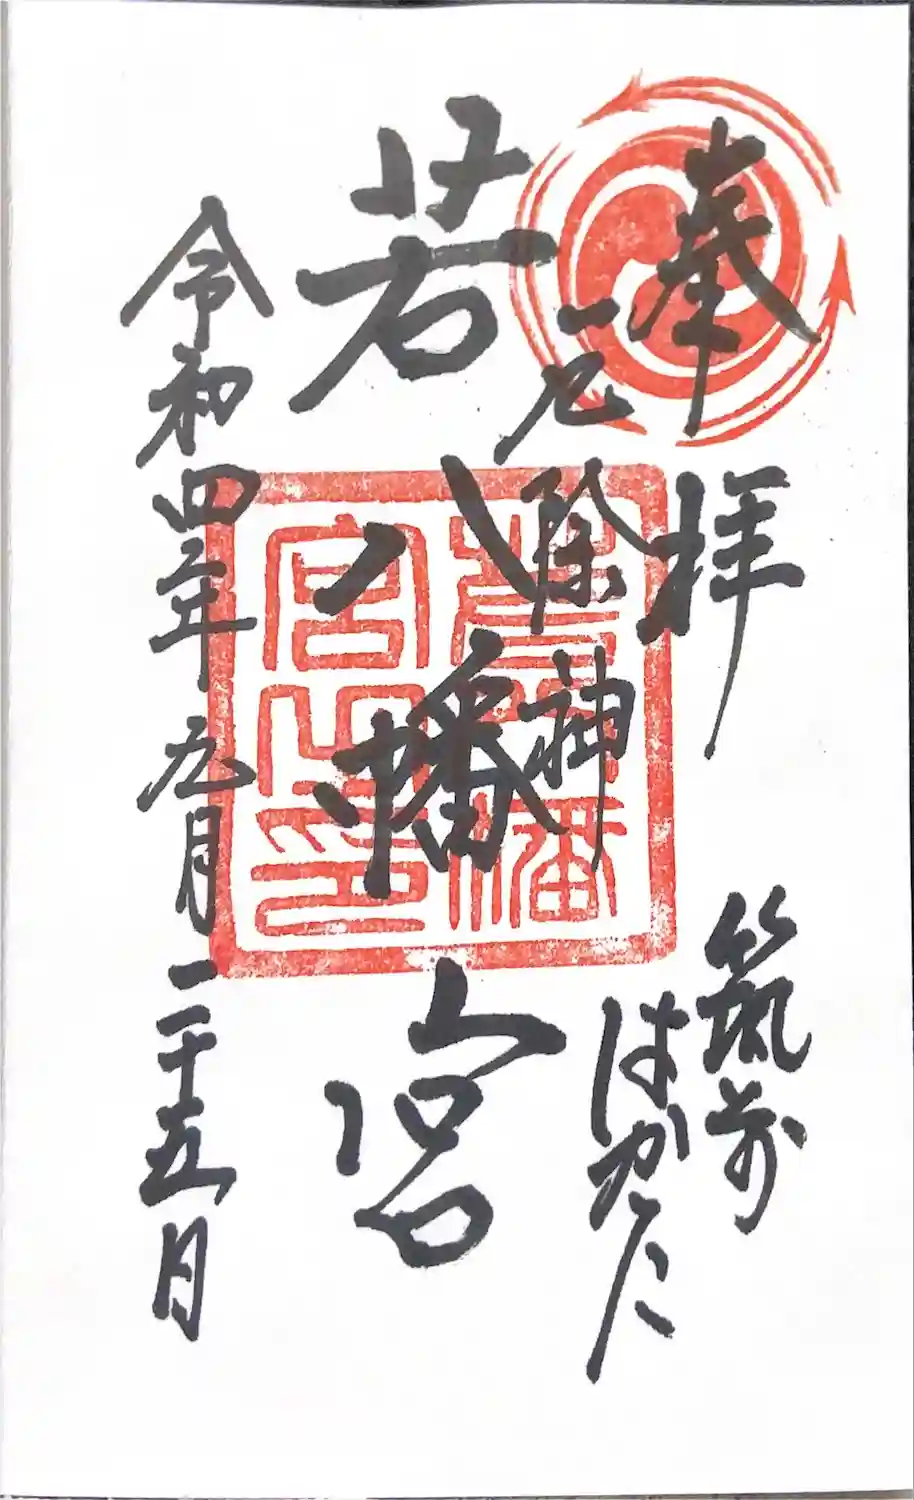 奉拝
筑前
はかた
厄除神
若八幡宮
若八幡宮之印
令和四年九月二十五日